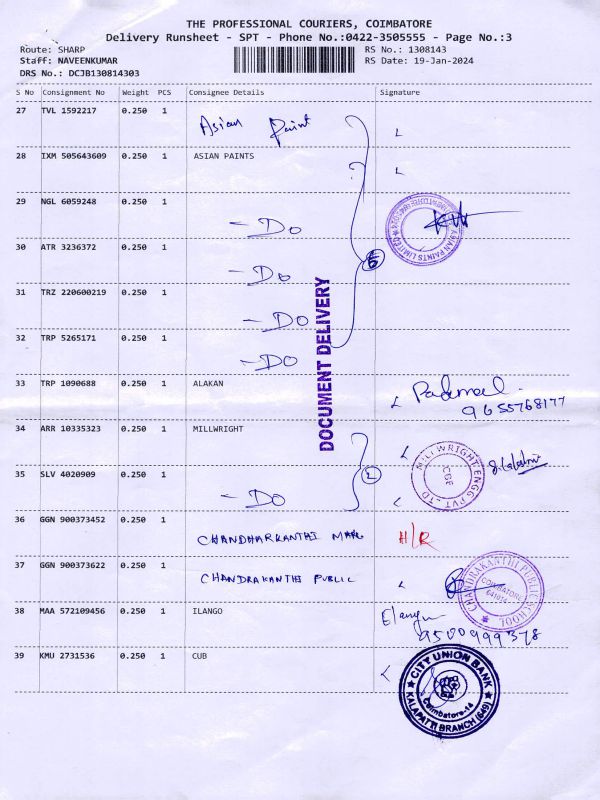 THE PROFESSIONAL COURIERS, COIMBATORE
Delivery Runsheet - SPT - Phone No.:0422-3505555 - Page No.:3
Route: SHARP RS No.: 1308143
Staff: NAVEENKUMAR RS Date: 19-Jan-2024
DRS No.: DCJB130814303
S No Consignment No Weight PCS Consignee Details Signature
27 TVL 1592217 0.250 1 Asian Paint
28 IXM 505643609 0.250 1 ASIAN PAINTS
29 NGL 6059248 0.250 1 - Do
ASIAN PAINTS LIMITED
30 ATR 3236372 0.250 1 - Do
31 TRZ 220600219 0.250 1 - Do
32 TRP 5265171 0.250 1 - Do
DOCUMENT DELIVERY
33 TRP 1090688 0.250 1 ALAKAN
9655768177
34 ARR 10335323 0.250 1 MILLWRIGHT
MILLWRIGHT ENGG PVT LTD
CBE
35 SLV 4020909 0.250 1 - Do
36 GGN 900373452 0.250 1 CHANDHARKANTHI H/R
37 GGN 900373622 0.250 1 CHANDRAKANTHI PUBLIC
CHANDRAKANTHI PUBLIC SCHOOL
COIMBATORE
641014
38 MAA 572109456 0.250 1 ILANGO Elangu
9500999378
39 KMU 2731536 0.250 1 CUB
CITY UNION BANK
Coimbatore-14
KALAPATTI BRANCH (649)